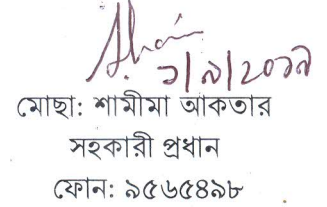 ১/৯/২০১৯
মোছা: শামীমা আকতার
সহকারী প্রধান
ফোন: ৯৫৬৫৪৯৮